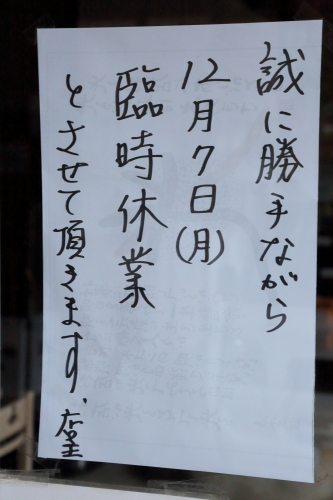 誠に勝手ながら
12月7日(月)
臨時休業
とさせて頂きます、店主